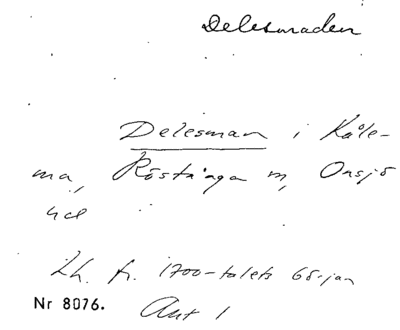 Delesmaden
Delesman i Kåle-
ma, Röstånga m, Onsjö
hd
Lh. fr. 1700-talets
Nr 8076. Ant 1